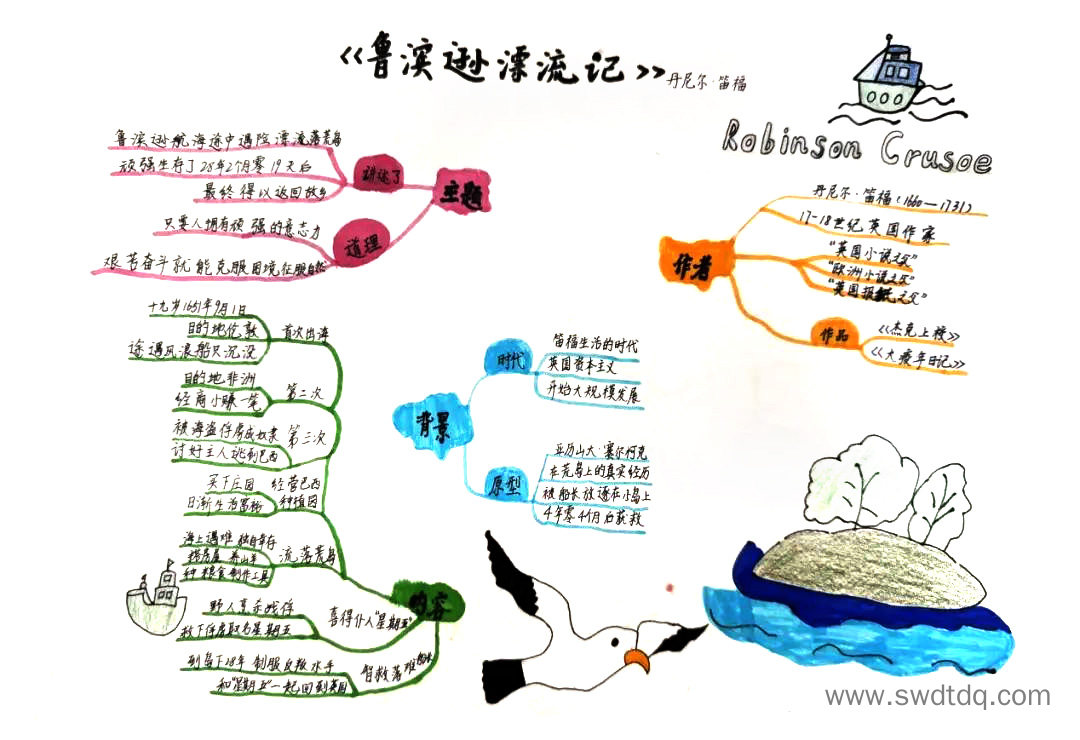 《鲁滨逊漂流记》
丹尼尔·笛福
Robinson Crusoe
主题
讲述了
鲁滨逊航海途中遇险漂流落荒岛
顽强生存了28年2个月零19天后
最终得以返回故乡
道理
只要人拥有顽强的意志力
艰苦奋斗就能克服困境征服自然
作者
丹尼尔·笛福(1660—1731)
17-18世纪英国作家
"英国小说之父"
"欧洲小说之父"
"英国报纸之父"
作品
《杰克上校》
《大疫年日记》
背景
时代
笛福生活的时代
英国资本主义
开始大规模发展
原型
亚历山大·塞尔柯克
在荒岛上的真实经历
被船长放逐在小岛上
4年零4个月后获救
内容
首次出海
十九岁1651年9月1日
目的地伦敦
途遇风浪船只沉没
第二次
目的地非洲
经商小赚一笔
第三次
被海盗俘虏成奴隶
讨好主人逃到巴西
经营巴西
种植园
买下庄园
日渐生活富裕
流落荒岛
海上遇难 独自幸存
搭房屋 养山羊
种粮食 制作工具
喜得仆人"星期五"
野人烹杀残俘
救下俘虏取名星期五
智救落难
到岛下28年 制服反叛水手
和"星期五"一起回到英国
www.swdtdq.com